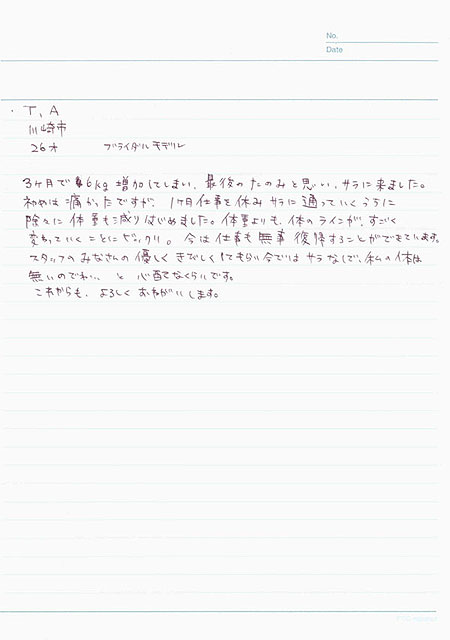 No.
Date
・T, A
川崎市
26才 ブライダルモデル
3ヶ月で 6kg 増加してしまい、最後のたのみと思い、サラに来ました。
初めは痛かったですが、1ヶ月仕事を休みサラに通っていくうちに
除々に体重も減りはじめました。体重よりも、体のラインが、すごく
変わっていくことにビックリ。今は仕事も無事復帰することができています。
スタッフのみなさんの優しくきびしくしてもらい今ではサラなしで、私の体は
無いのでわ… と心配なくらいです。
これからも、よろしくおねがいします。